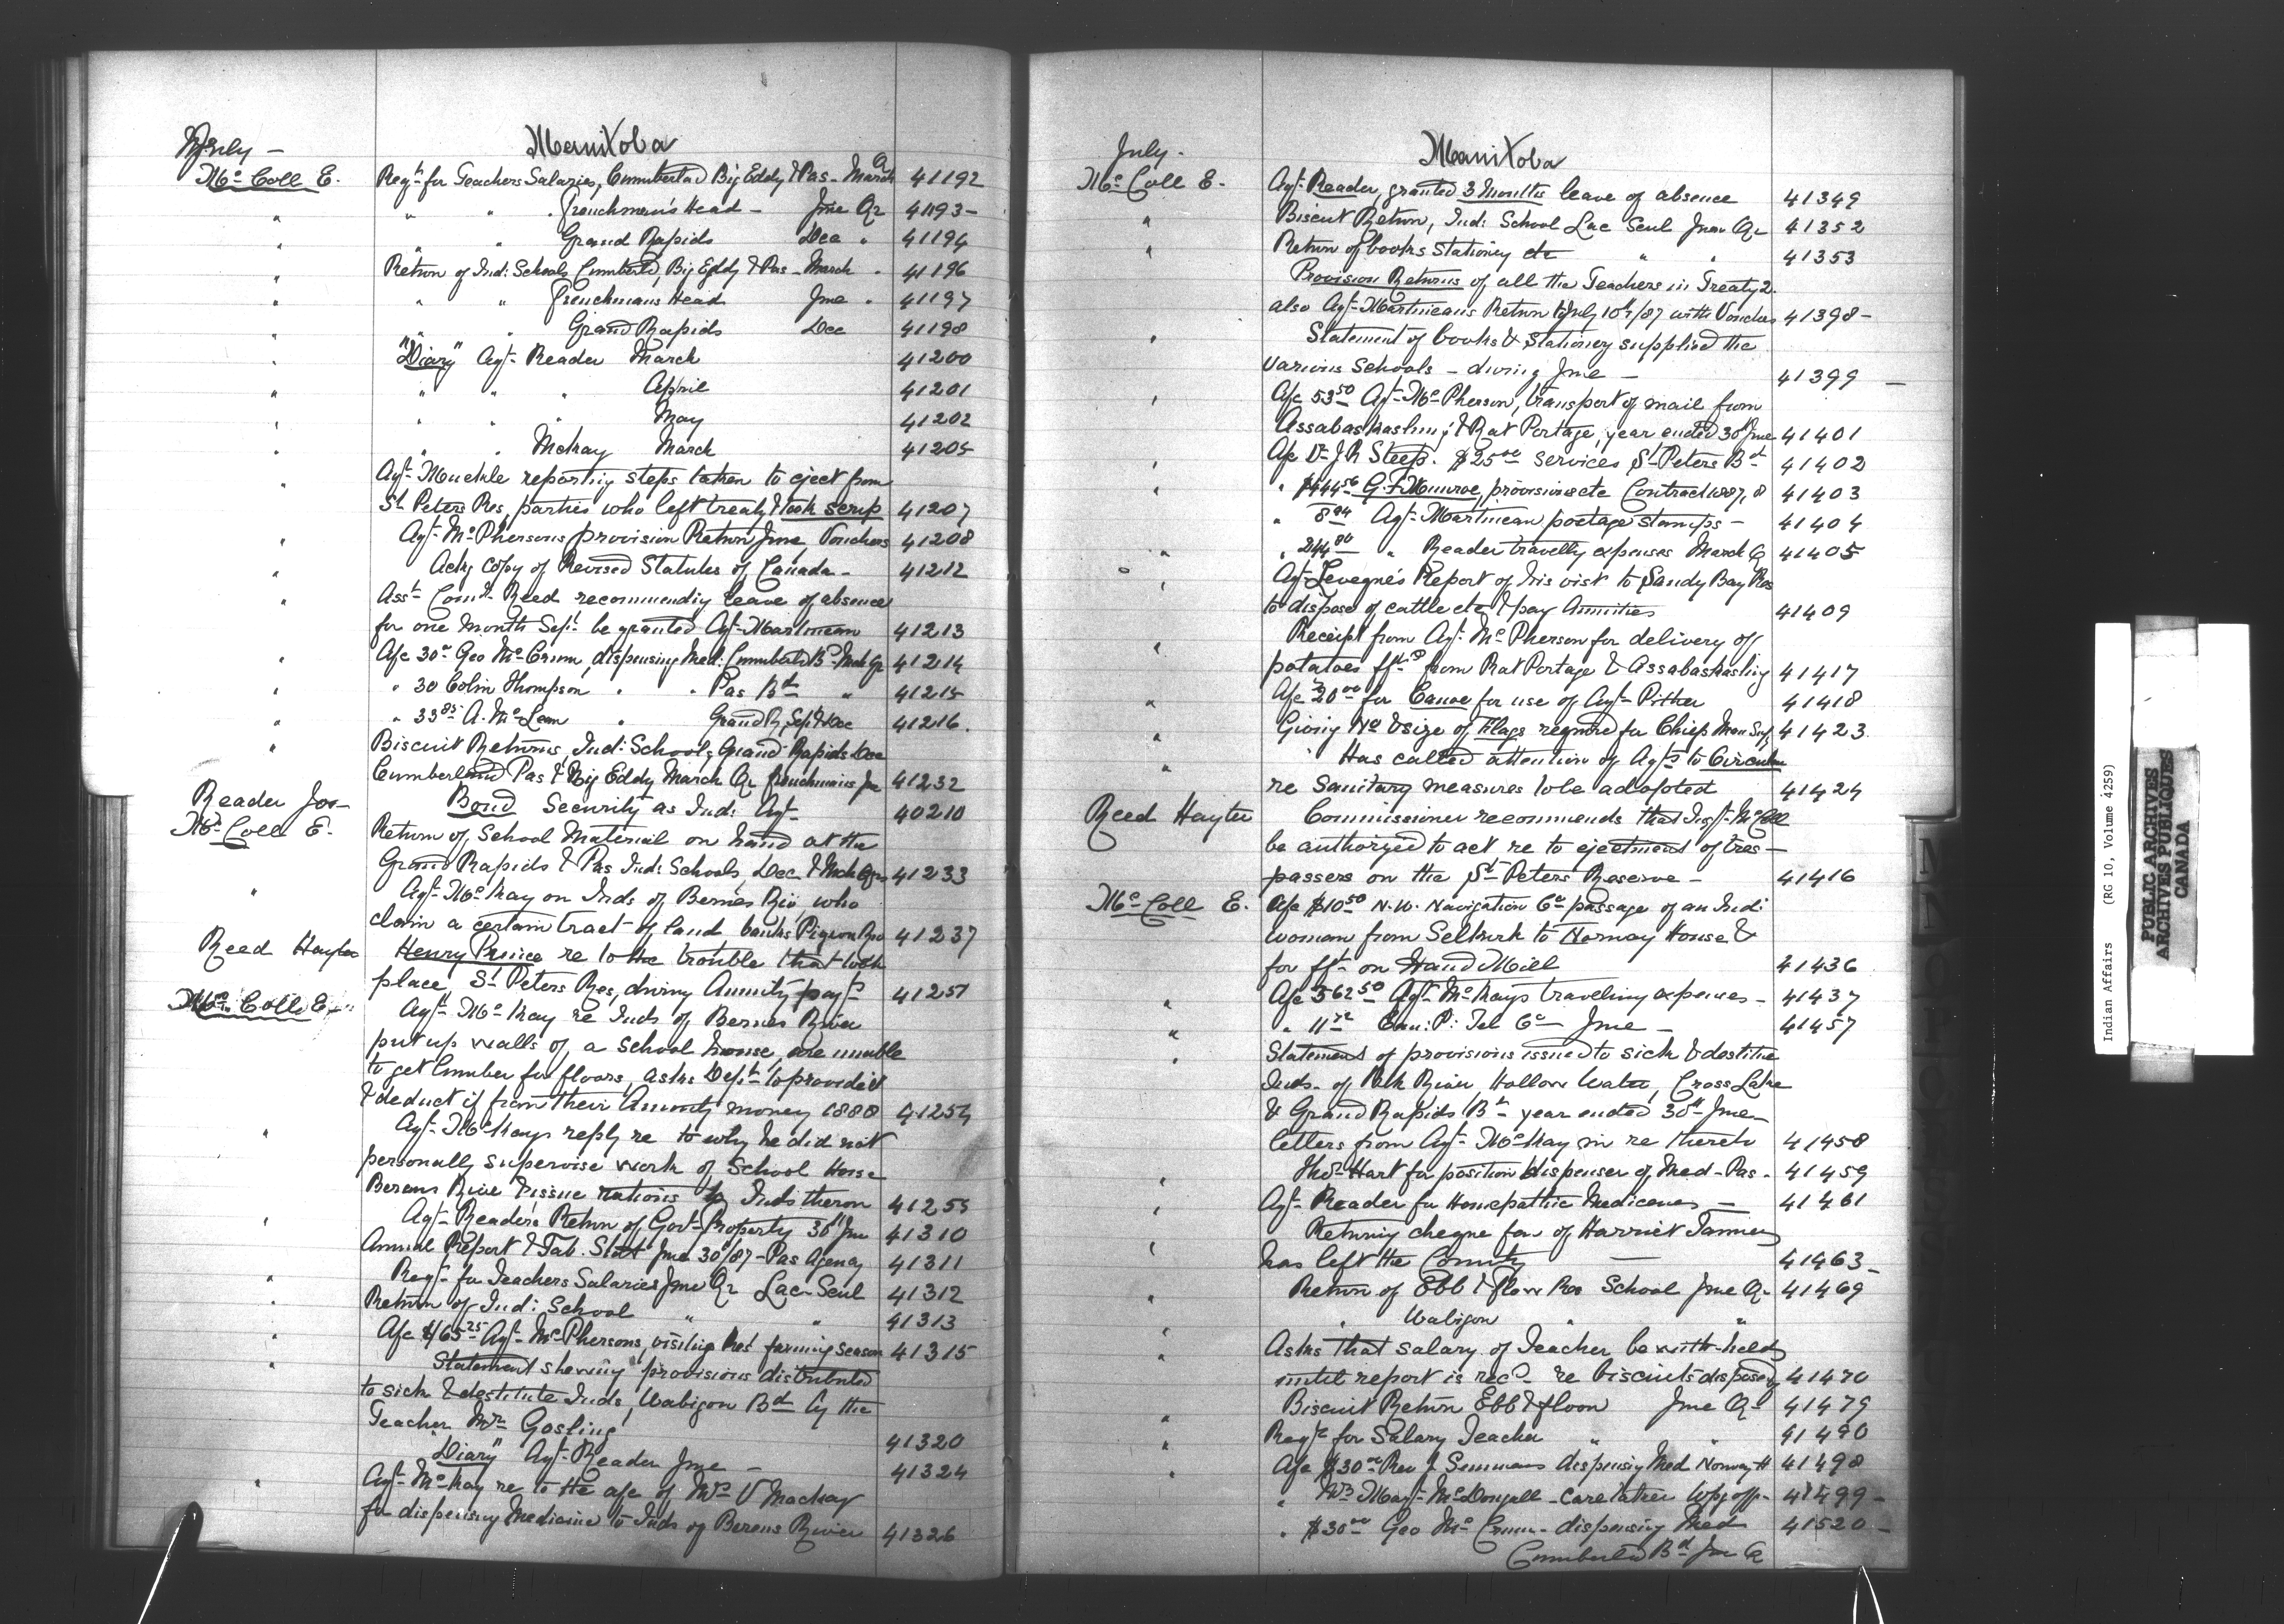 July —
Manitoba
McColl E. Reqn for Teachers Salaries, Cumberland Big Eddy & Pas - March Qr 41192
" " " Frenchman's Head - June Qr 41193 -
" " " Grand Rapids Dec " 41194
" Return of Ind: Schools Cumberld, Big Eddy & Pas - March " 41196
" " " Frenchmans Head June " 41197
" " " Grand Rapids Dec 41198
" "Diary" Agt Reader March 41200
" " " " April 41201
" " " " May 41202
" " " McKay March 41205
" Agt Muckle reporting steps taken to eject from
St Peters Res, parties who left treaty & took scrip 41207
" Agt McPhersons provision Return June, Vouchers 41208
" Asks copy of Revised Statutes of Canada - 41212
" Asst Comr Reed recommending leave of absence
for one month Sept be granted Agt Martineau 41213
" A/c 30.00 Geo McCrum, dispensing Med: Cumberld Bd Mch Qr 41214
" 30 Colin Thompson " " Pas Bd " 41215
" " 33.85 A. McLean " Grand R, Sept & Dec 41216.
" Biscuit Returns, Ind: Schools Grand Rapids Dec
Cumberland Pas & Big Eddy March Qr Frenchmans Jne 41232
Reader Jos Bond Security as Ind: Agt 40210
McColl E. Return of School Material on hand at the
Grand Rapids & Pas Ind: Schools, Dec & Mch Qrs 41233
" Agt McKay on Inds of Berens Riv, who
claim a certain tract of land banks Pigeon Riv 41237
Reed Hayter Henry Prince re to the trouble that took
place, St Peters Res, during Annuity payts 41251
McColl E. Agt McKay re Inds of Berens River
put up walls of a School house, are unable
to get lumber for floors, asks Dept to provide it
& deduct it from their Annuity money 1888 41254
" Agt McKays reply re to why he did not
personally supervise work of School House
Berens River & issue rations to Inds theron 41255
" Agt Reader's Return of Govt Property 30th Jne 41310
Annual Report & Tab. Statt June 30/87 - Pas Agency 41311
" Reqn for Teachers Salaries June Qr Lac Seul 41312
" Return of Ind: School " " 41313
" A/c $165.25 Agt McPhersons, visiting Res' farming season 41315
" Statement shewing provisions distributed
to sick & destitute Inds, Wabigon Bd by the
Teacher Mr Gosling 41320
"Diary" Agt Reader June - 41324
" Agt McKay re to the a/c of Mrs V Mackay
for dispensing Medicine to Inds of Berens River 41326
July -
Manitoba
McColl E. Agt Reader, granted 3 Months leave of absence 41349
" Biscuit Return, Ind: School Lac Seul June Qr 41352
" Return of books Stationery etc " " 41353
Provision Returns of all the Teachers in Treaty 2.
also Agt Martineau's Return to July 10th/87 with Vouchers 41398 -
" Statement of books & Stationery supplied the
various Schools - during June - 41399 -
" A/c 53.50 Agt McPherson, transport of mail from
Assabaskashing & Rat Portage, year ended 30th June 41401
" A/c Dr J R Steep. $25.00 services St Peters Bd 41402
" " $444.56 G. F. Munroe, provisions etc Contract 1887, 8 41403
" 8.94 Agt Martineau postage stamps - 41404
" " 244.80 " Reader travellg expenses March Q 41405
" Agt Levegne's Report of his visit to Sandy Bay Res
to dispose of cattle etc & pay Annuities 41409
" Receipt from Agt McPherson for delivery of
potatoes from Rat Portage & Assabaskashing 41417
" A/c 20.00 for Canoe for use of Agt Pither 41418
" Giving No & size of Flags required for Chiefs Man Sup. 41423
" Has called attention of Agts to Circular
re Sanitary measures to be adopted 41424
Reed Hayter Commissioner recommends that Inspt McColl
be authorized to act re to ejectment of tres -
passers on the St Peters Reserve - 41416
McColl E. A/c $10.50 N.W. Navigation Co passage of an Ind:
woman from Selkirk to Norway House &
for fft on Hand Mill 41436
" A/c 362.50 Agt McKays traveling expenses - 41437
" " Can: P: Tel Co - June - 41457
" Statement of provisions issued to sick & destitue
Inds - of River Hollow Water, Cross Lake
& Grand Rapids Bds year ended 30th June
letters from Agt McKay in re thereto 41458
" Thos Hart for position dispenser of Med - Pas - 41459
" Agt Reader for Homepathic Medicenes - 41461
" Returning cheque favr of Harriet Tanner
has left the Country — 41463 -
" Return of Ebb & flow Res School June Q - 41469
" Wabigon " "
" Asks that salary of Teacher be with-held
until report is recd re biscuits disposed 41470
" Biscuit Return Ebb & floon June Q - 41479
" Reqn for Salary Teacher " " 41490
" A/c $30.00 Rev J. Semmens dispensing Med Norway H 41498
" Mrs Mary McDougall - caretaker Wpg off - 41499 -
" $30.00 Geo McCrum - dispensing Med 41520 -
Cumberld Bd June Q
Indian Affairs (RG 10, Volume 4259)
PUBLIC ARCHIVES
ARCHIVES PUBLIQUES
CANADA